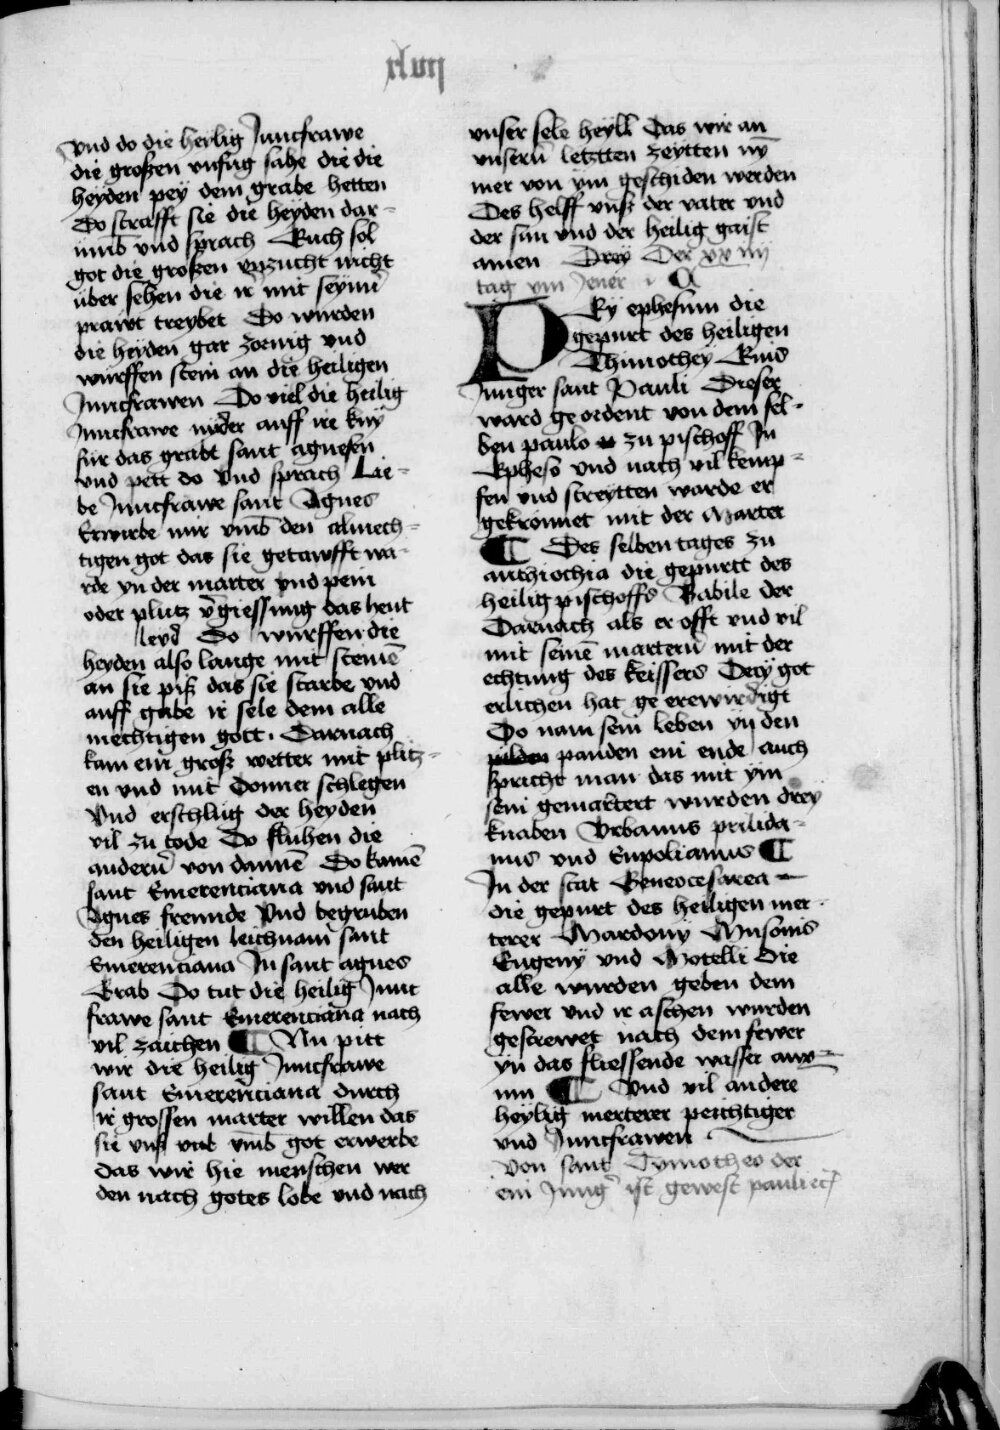 xlvij
Vnd do die heilig Junckfrawe
die großen vnfug sahe die die
heyden pey dem grabe hetten
Do strafft sie die heyden dar-
umb vnd sprach Euch sol
got die großen vnzucht nicht
über sehen die ir mit seyner
prawt treybet Do wurden
die heyden gar zornig vnd
wurffen stein an die heiligen
Junckfrawen Do viel die heilig
Junckfrawe nyder auff ire kny
für das grabt sant agnesen
vnd pett do Vnd sprach Lie-
be Junckfrawe sant Agnes
Erwirbe mir vmb den almech-
tigen got das sie getawfft wa-
rde yn der marter vnd pein
oder plutz vergiessung das heut
leyd Do wurffen die
heyden also lange mit steinen
an sie piß das sie starbe vnd
auff gabe ir sele dem alle
mechtigen gott. Darnach
kam ein groß wetter mit plitz-
en vnd mit Donner schlegen
Vnd erschlug der heyden
vil zu tode Do fluhen die
andern von dannen Do kamen
sant Emerenciana vnd sant
Agnes freunde Vnd begruben
den heiligen leichnam sant
Emerenciana In sant agnes
Grab Do tut die heilig Junck
frawe sant Emerenciana nach
vil zaichen ¶ Nu pitt
wir die heilig Junckfrawe
sant Emerenciana durch
ir grossen marter willen das
sie vns vmb got erwerbe
das wir hie menschen wer
den nach gotes lobe vnd nach
vnser sele heyll Das wir an
vnsern letztten zeytten ny
mer von ym geschiden werden
Des helff vnß der vater vnd
der sun vnd der heilig gaist
amen Drey Der xx iiij
tag vm Jener
Ey ephesum die
gepurt des heiligen
Thimothey Eins
Junger sant Pauli Dieser
ward geordent von dem sel-
ben paulo zu pischoff In
Epheso vnd nach vil kemp-
fen vnd streytten warde er
gekrönnet mit der Marter
¶ Des selben tages zu
anthiochia die gepurtt des
heilig pischoffs Babile der
Darnach als er offt vnd vil
mit seinen martern mit der
echtung des keissers Decy got
erlichen hat ge erewirdigt
Do nam sein leben yn den
pilden panden ein ende auch
spricht man das mit ym
sein gemartert wurden drey
knaben Vrbanus prilida-
nus vnd Eupolianus ¶
In der stat Geneocesarea
die gepurt des heiligen mer-
terer Mardony Musonis
Eugeny vnd Motelli Die
alle wurden geben dem
fewer vnd ir aschen wurden
gestrewet nach dem fewer
yn das fliessende wasser awx-
um ¶ Vnd vil andere
heylig merterer peichtiger
vnd Junckfrawen
Von sant Tymotheo der
ein Junger ist gewest pauli etc